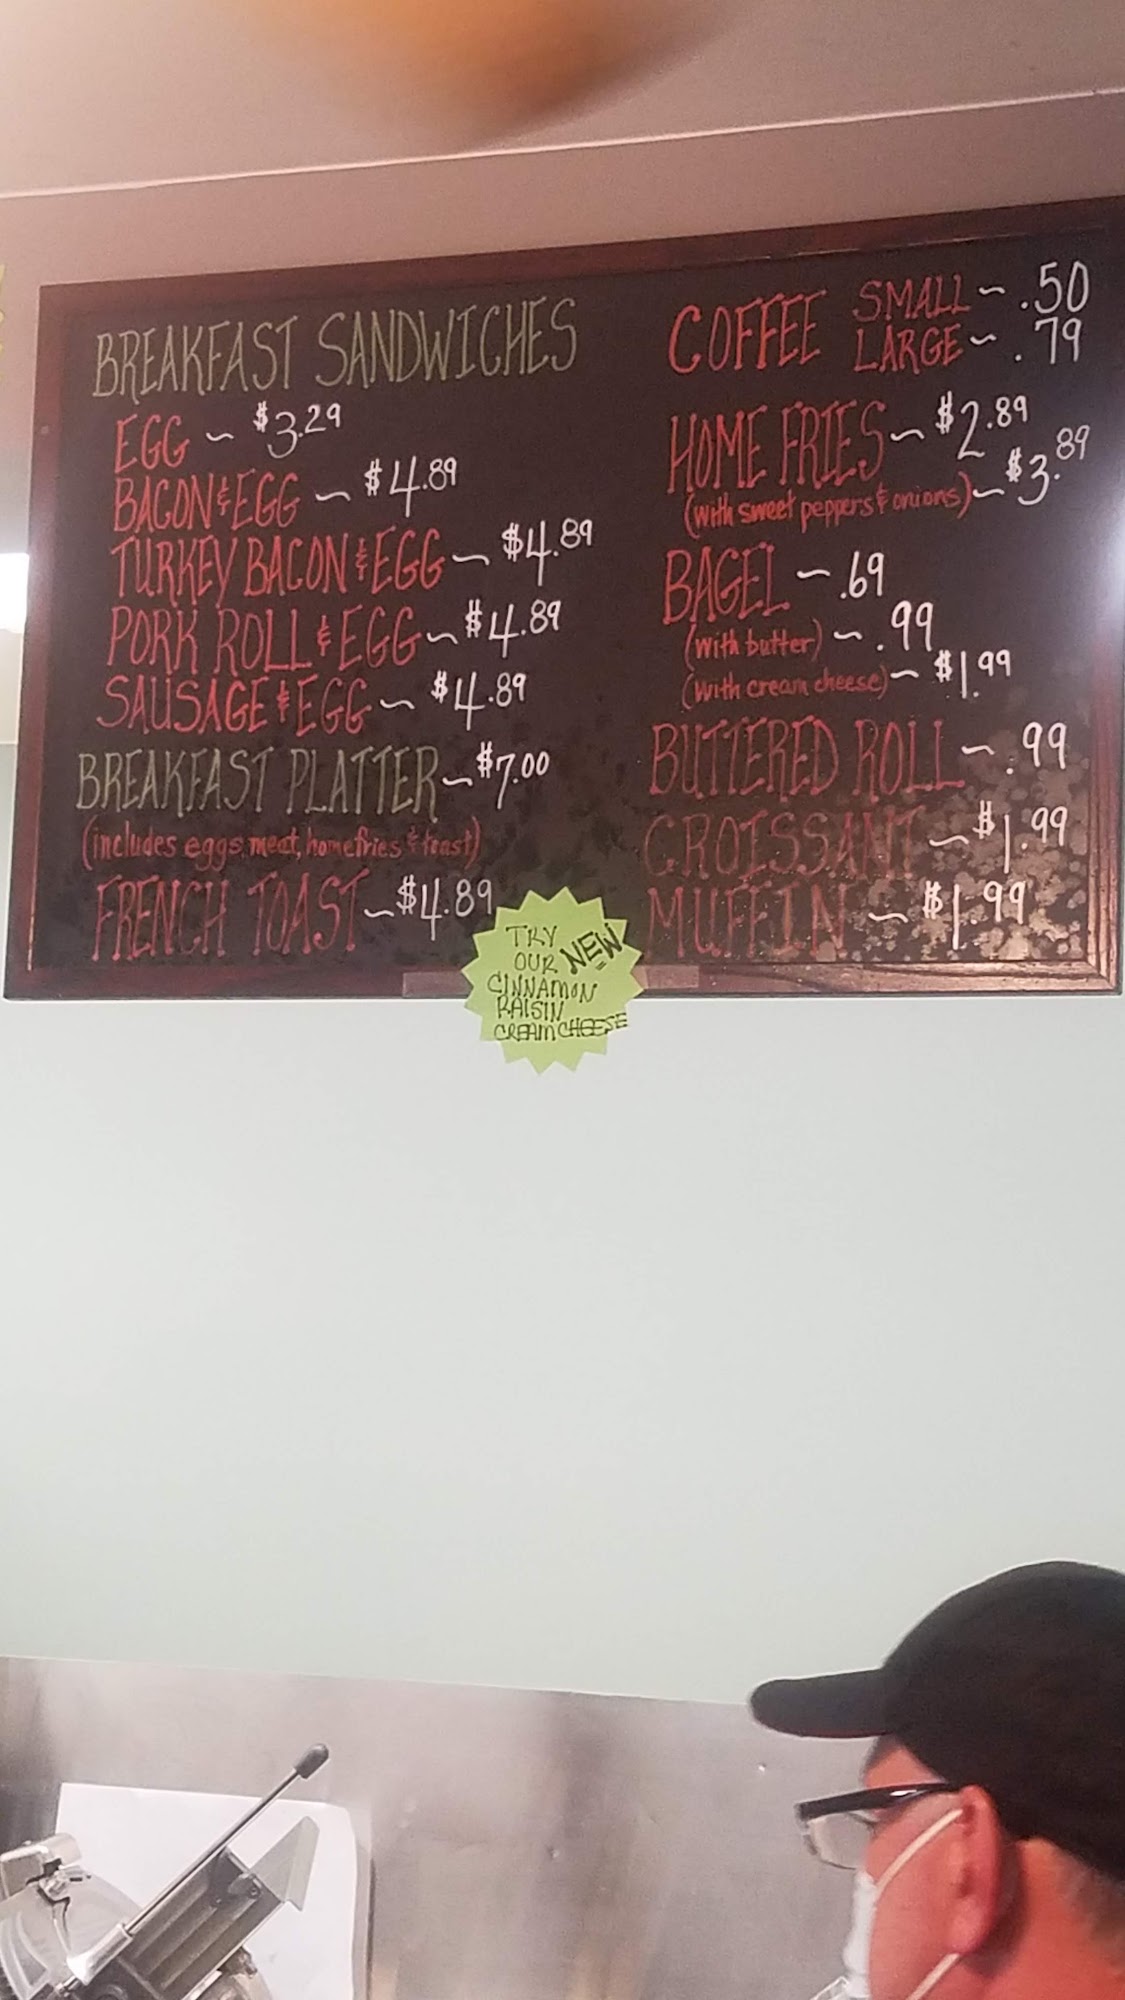 BREAKFAST SANDWICHES
EGG ~ $3.29
BACON & EGG ~ $4.89
TURKEY BACON & EGG ~ $4.89
PORK ROLL & EGG ~ $4.89
SAUSAGE & EGG ~ $4.89
BREAKFAST PLATTER ~ $7.00
(includes eggs, meat, homefries & toast)
FRENCH TOAST ~ $4.89
COFFEE SMALL ~ .50
LARGE ~ .79
HOME FRIES ~ $2.89
(with sweet peppers & onions) ~ $3.89
BAGEL ~ .69
(with butter) ~ .99
(with cream cheese) ~ $1.99
BUTTERED ROLL ~ .99
CROISSANT ~ $1.99
MUFFIN ~ $1.99
TRY
OUR NEW
CINNAMON
RAISIN
CREAM CHEESE